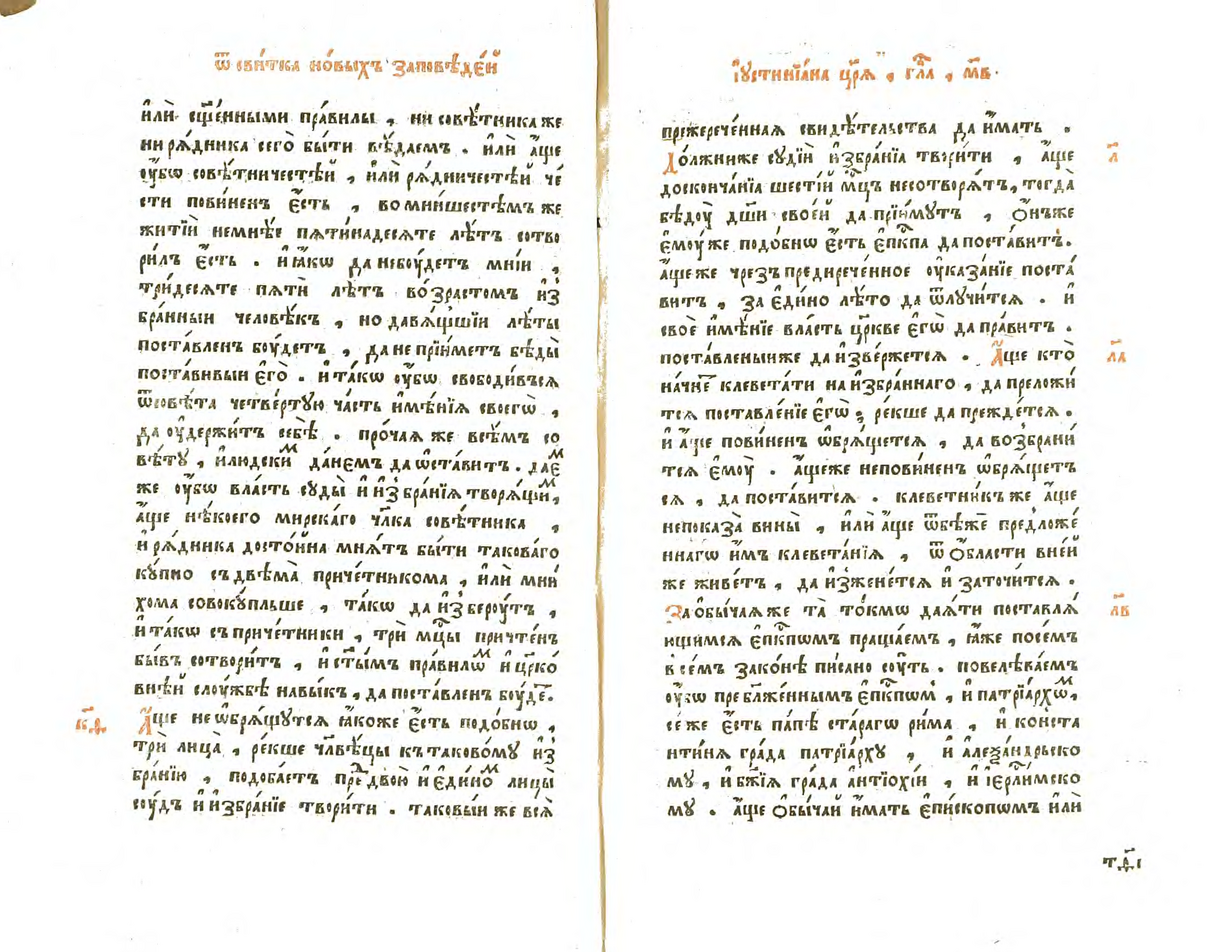 ѿ сви́тка но́выхъ за́повѣде́й
и҆лѝ сщ҃е́нными пра́вилы , ни совѣ́тника же
ни рѧ́дника сегѡ̀ бы́ти вѣ́даемъ . и҆лѝ а҆́ще
оу҆́бѡ совѣ́тничестѣй , и҆лѝ рѧ́дничестѣй че́
сти пови́ненъ є҆́сть , во мни́шестѣмъ же
житїѝ немнѣ́е пѧти́надесѧте лѣ́тъ сотво
ри́лъ є҆́сть . и҆ ꙗ҆́кѡ да небоу́детъ мні́и ,
три́десѧте пѧтѝ лѣ́тъ во́зрастомъ и҆з̾
бра́нныи человѣ́къ , но да вѧ́щшїи лѣ́ты
поста́вленъ боу́детъ , да не прїи́метъ бѣды̀
поста́вивыи є҆го̀ . и҆ та́кѡ оу҆́бѡ свободи́въсѧ
ѿ совѣ́та четве́ртую ча́сть и҆мѣ́нїѧ своегѡ̀ ,
да оу҆держи́тъ себѣ̀ . про́чаѧ же всѣ́мъ со
вѣ́ту , и҆ людски́м да́немъ да ѡ҆ста́витъ . дае́м
же оу҆́бѡ вла́сть суды̀ и҆ и҆збра́нїѧ творѧ́щим ,
а҆́ще нѣ́коего мирска́го чл҃ка совѣ́тника ,
и҆ рѧ́дника досто́йна мнѧ́тъ бы́ти такова́го
ку́пно съ двѣ́ма̀ приче́тникома , и҆лѝ мни́
хома совоку́пльше , та́кѡ да и҆збероу́тъ ,
и҆ та́кѡ съ приче́тники , трѝ мц҃ы причте́нъ
бы́въ сотвори́тъ , и҆ ст҃ы́мъ пра́вилѡм и҆ цр҃ко́
внѣй слоу́жбѣ навы́къ , да поста́вленъ боу́де .
к҃ѳ
А҆́ще не ѡ҆брѧ́щутсѧ ꙗ҆́коже є҆́сть подо́бнѡ ,
трѝ лица̀ , ре́кше чл҃вѣ́цы къ таково́му и҆з̾
бра́нїю , подоба́етъ пред двою̀ и҆ є҆ди́ном лицы̀
соу́дъ и҆ и҆збра́нїе твори́ти . таковы́и же всѧ̀
і҆устинїа́на цр҃ѧ̀ , гл҃а , м҃в .
прежерече́ннаѧ свидѣ́тельства да и҆́мать .
До́лжниже судїѝ и҆збра́нїа твори́ти , а҆́ще
л҃
до сконча́нїа шестѝй мц҃ъ несотворѧ́тъ, тогда̀
бѣ́доу̀ дш҃и свое́й да прїи́мутъ , ѻ҆́нъже
є҆моу́же подо́бнѡ є҆́сть є҆пк҃па да поста́витъ .
а҆́ще же чрезъ предирече́нное оу҆каза́нїе поста́
витъ , за є҆ди́но лѣ́то да ѿлучи́тсѧ . и҆
своѐ и҆мѣ́нїе вла́сть цр҃кве є҆гѡ̀ да пра́витъ .
поста́вленыиже да и҆зве́ржетсѧ . А҆́ще кто̀
л҃а
начне́ клевета́ти на и҆збра́ннаго , да преложи́
тсѧ поставле́нїе є҆гѡ̀ , ре́кше да прежде́тсѧ .
и҆ а҆́ще пови́ненъ ѡ҆брѧ́щетсѧ , да возбрани́
тсѧ є҆моу̀ . а҆́щеже непови́ненъ ѡ҆брѧ́щет
сѧ , да поста́витсѧ . клеветни́къ же а҆́ще
непоказа̀ вины̀ , и҆лѝ а҆́ще ѿбѣже́ предложе́
ннагѡ и҆́мъ клевета́нїѧ , ѿ ѻ҆́бласти вне́й
же живе́тъ , да и҆зжене́тсѧ и҆ заточи́тсѧ .
За ѻ҆бы́чаѧ же та̀ то́кмѡ даѧ́ти поставлѧ́
л҃в
ющимсѧ є҆пк҃пѡмъ праща́емъ , ꙗ҆́же посе́мъ
всѐмъ зако́нѣ пи́сано соу́ть . повелѣва́емъ
оу҆́бѡ пребл҃же́ннымъ є҆пк҃пѡм , и҆ патрїа́рхѡм ,
се́же є҆́сть па́пѣ ста́рагѡ ри́ма , и҆ конста
нти́нѧ гра́да патрїа́рху , и҆ а҆леѯа́ндрьско
му , и҆ бж҃їѧ гра́да а҆нтїохі́и , и҆ і҆ерл҃и́мско
му . а҆́ще ѻ҆бы́чаи и҆́мать є҆пи́скопѡмъ и҆лѝ
тд҃і